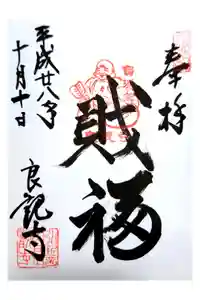 奉拝
財福
平成廿八年
十月十日
良観寺